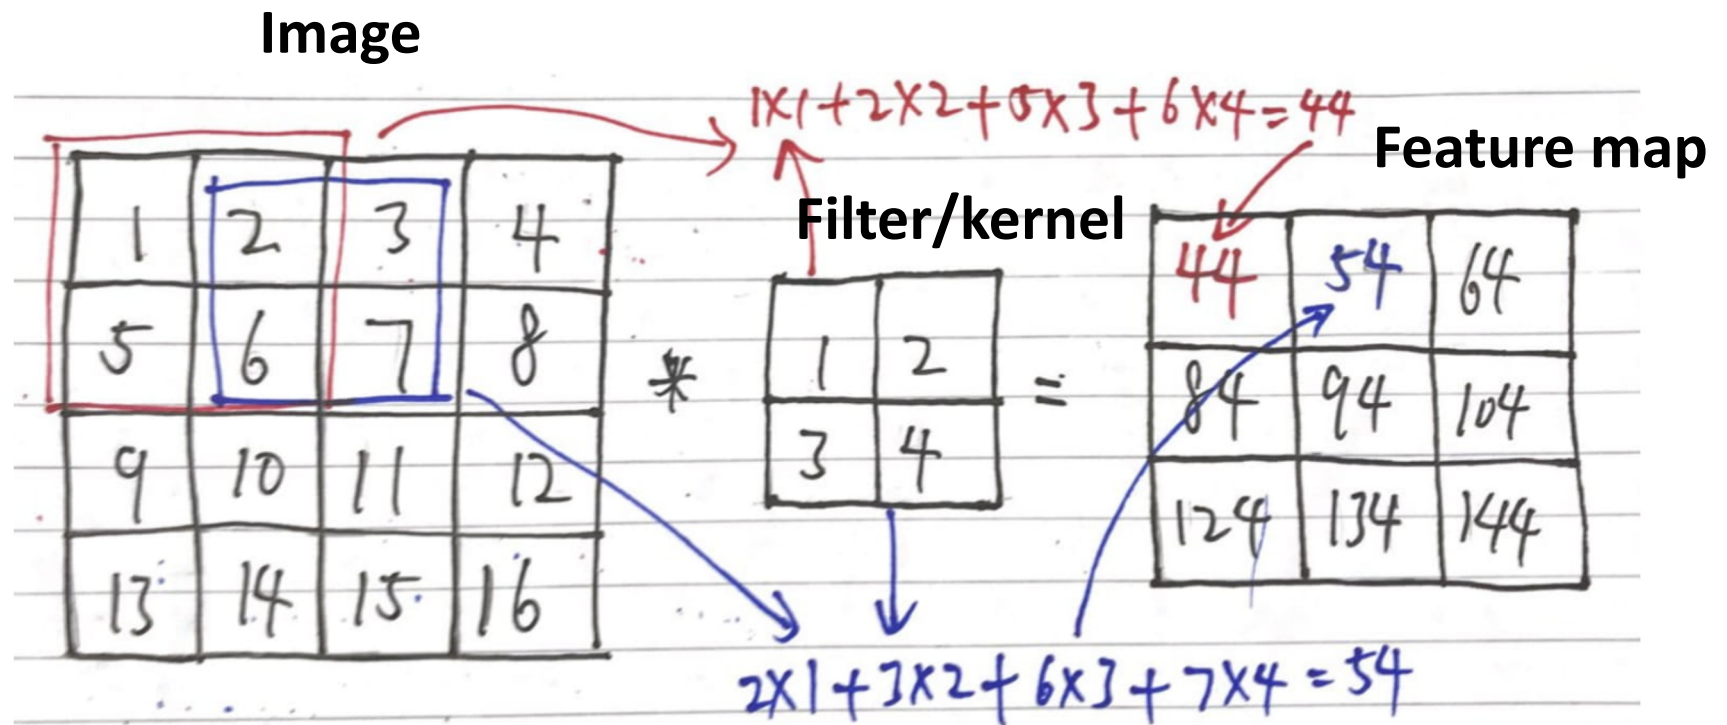 Image
1×1+2×2+5×3+6×4=44
Feature map
Filter/kernel
1 2 3 4
5 6 7 8
9 10 11 12
13 14 15 16
*
1 2
3 4
=
44 54 64
84 94 104
124 134 144
2×1+3×2+6×3+7×4=54